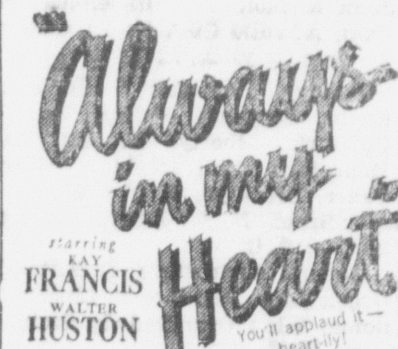 "Always
in my
Heart"
starring
KAY
FRANCIS
WALTER
HUSTON
You'll applaud it—
heart-ily!